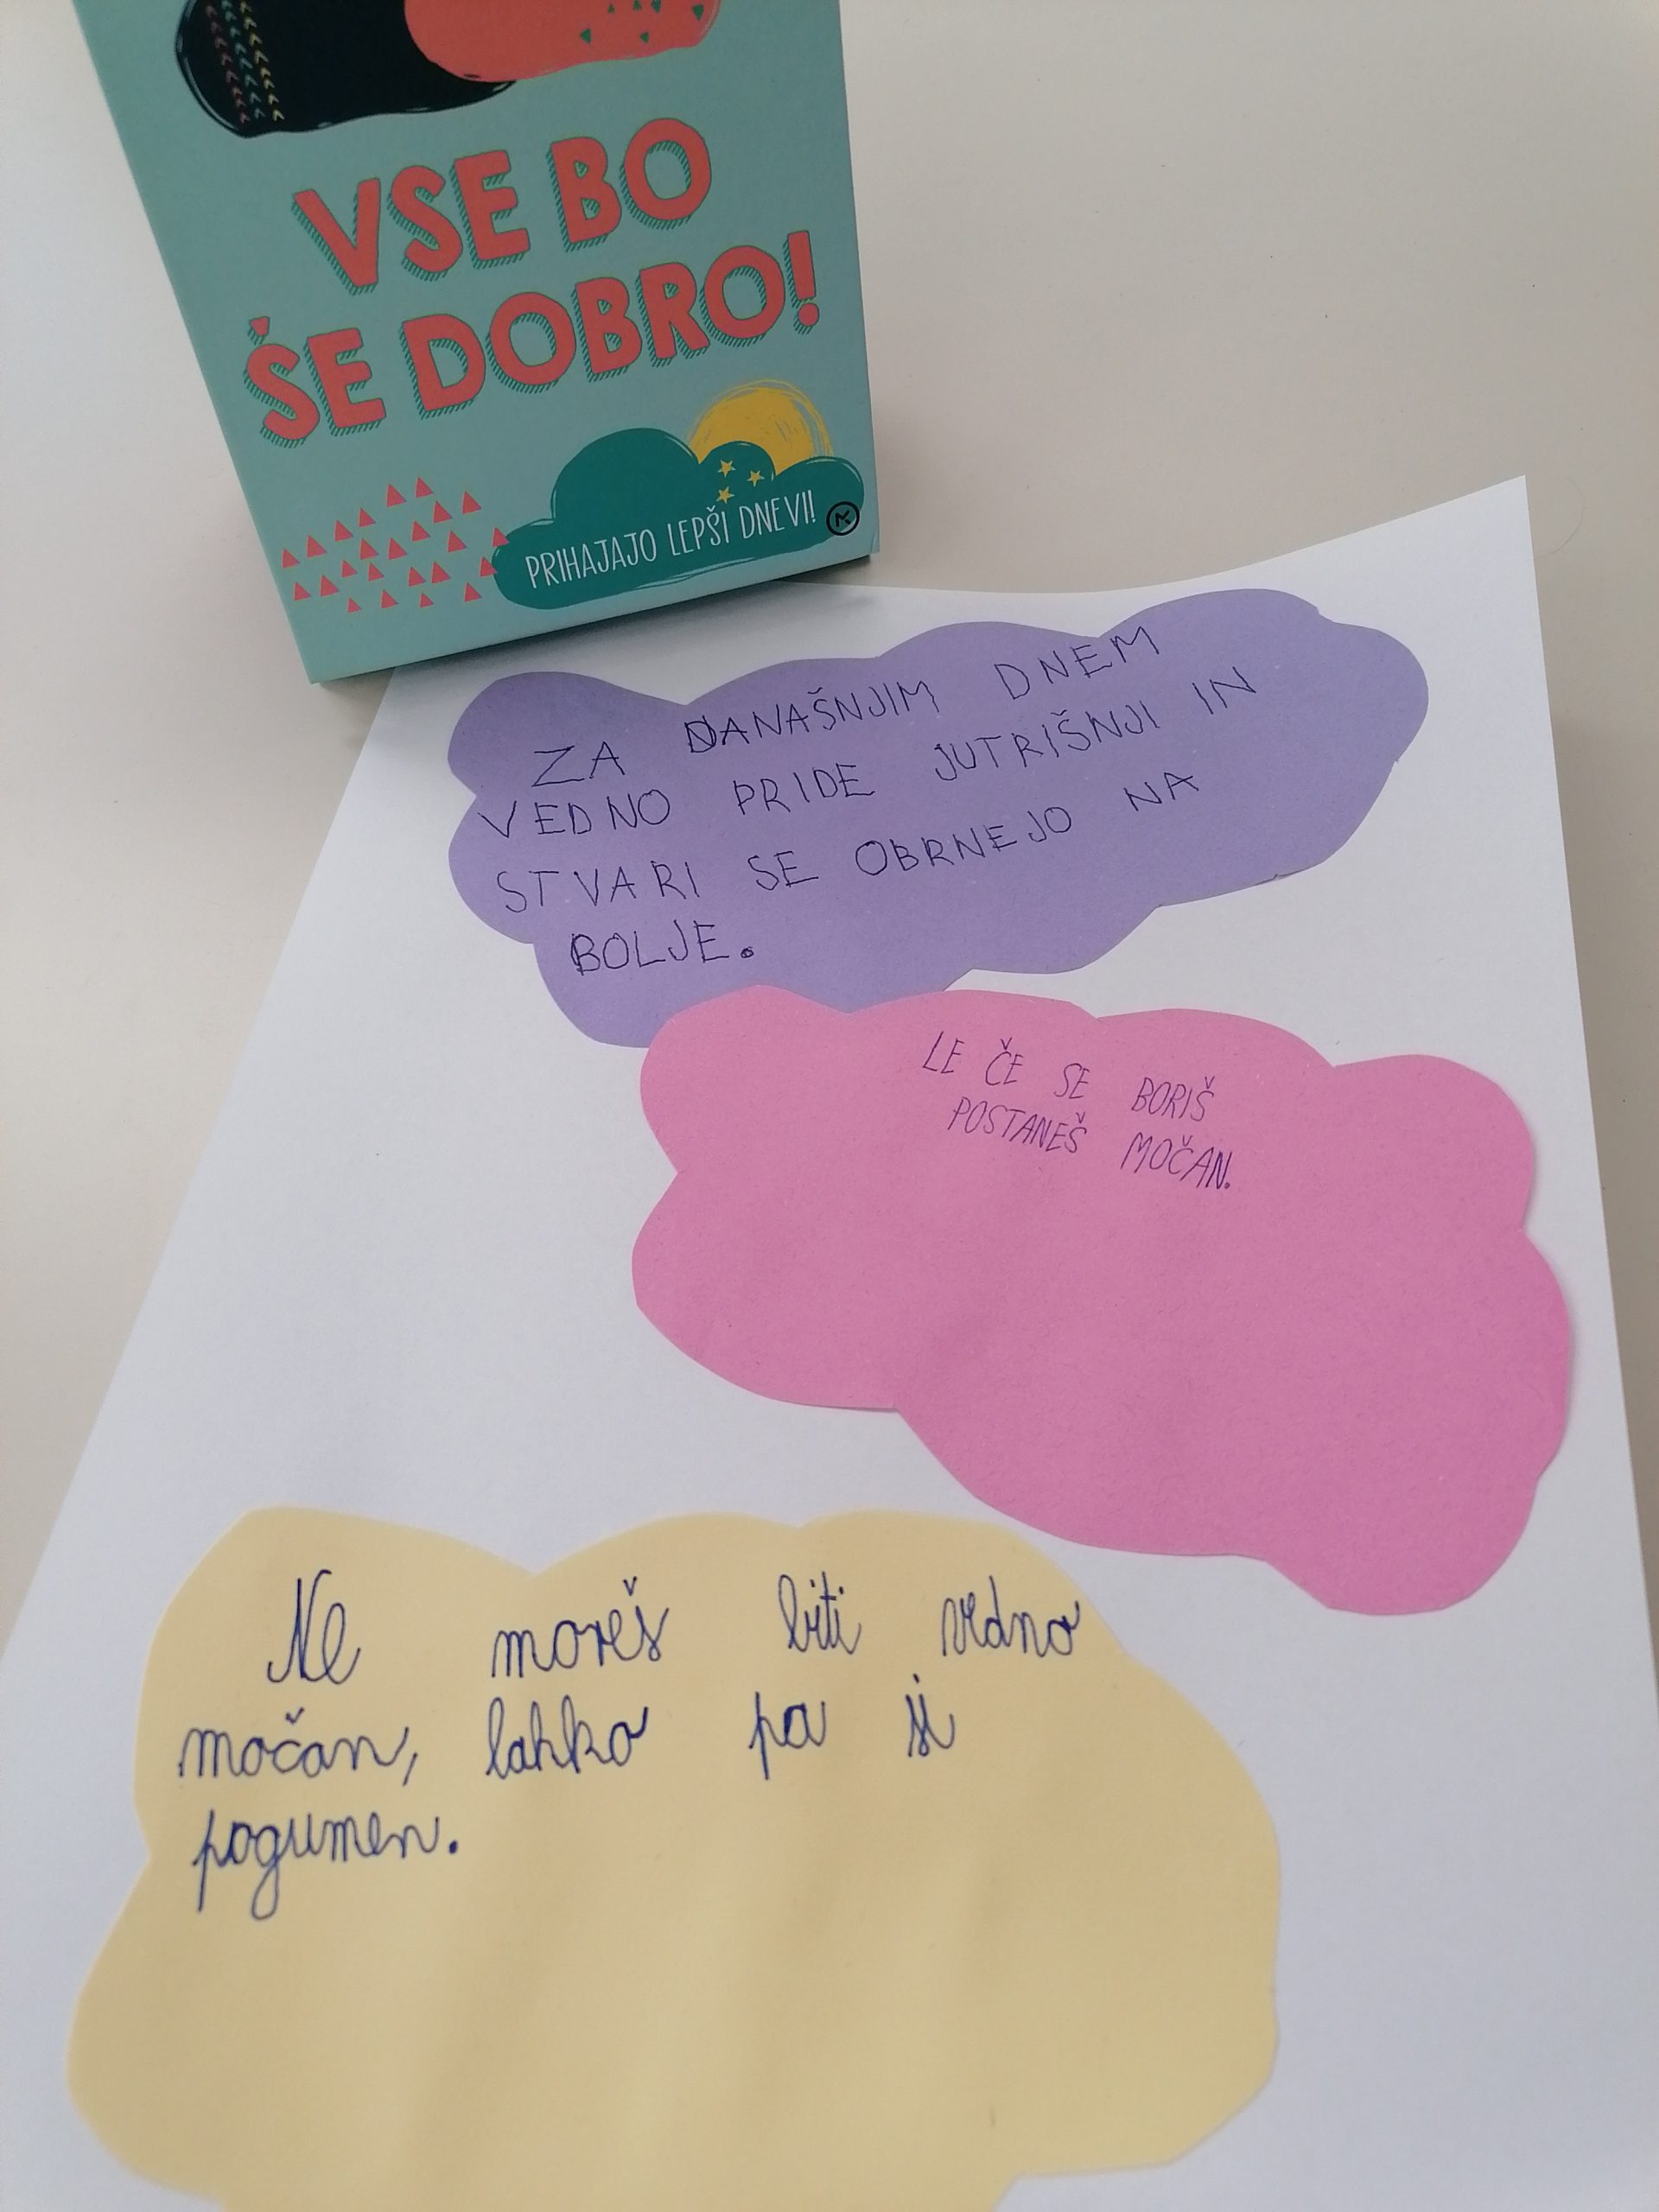 VSE BO
ŠE DOBRO!
PRIHAJAJO LEPŠI DNEVI!
ZA DANAŠNJIM DNEM
VEDNO PRIDE JUTRIŠNJI IN
STVARI SE OBRNEJO NA
BOLJE.
LE ČE SE BORIŠ
POSTANEŠ MOČAN.
Ne moreš biti vedno
močan, lahko pa si
pogumen.